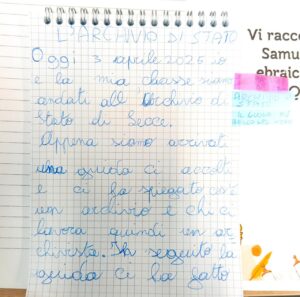 L'ARCHIVIO DI STATO
Oggi 3 aprile 2025 io
e la mia classe siamo
andati all'Archivio di
Stato di Lecce.
Appena siamo arrivati
una guida ci accolti
e ci ha spiegato cos'è
un archivio e chi ci
lavora quindi un ar
chivista. In seguito la
guida ci ha fatto
Vi racco
Samu
ebraic
?